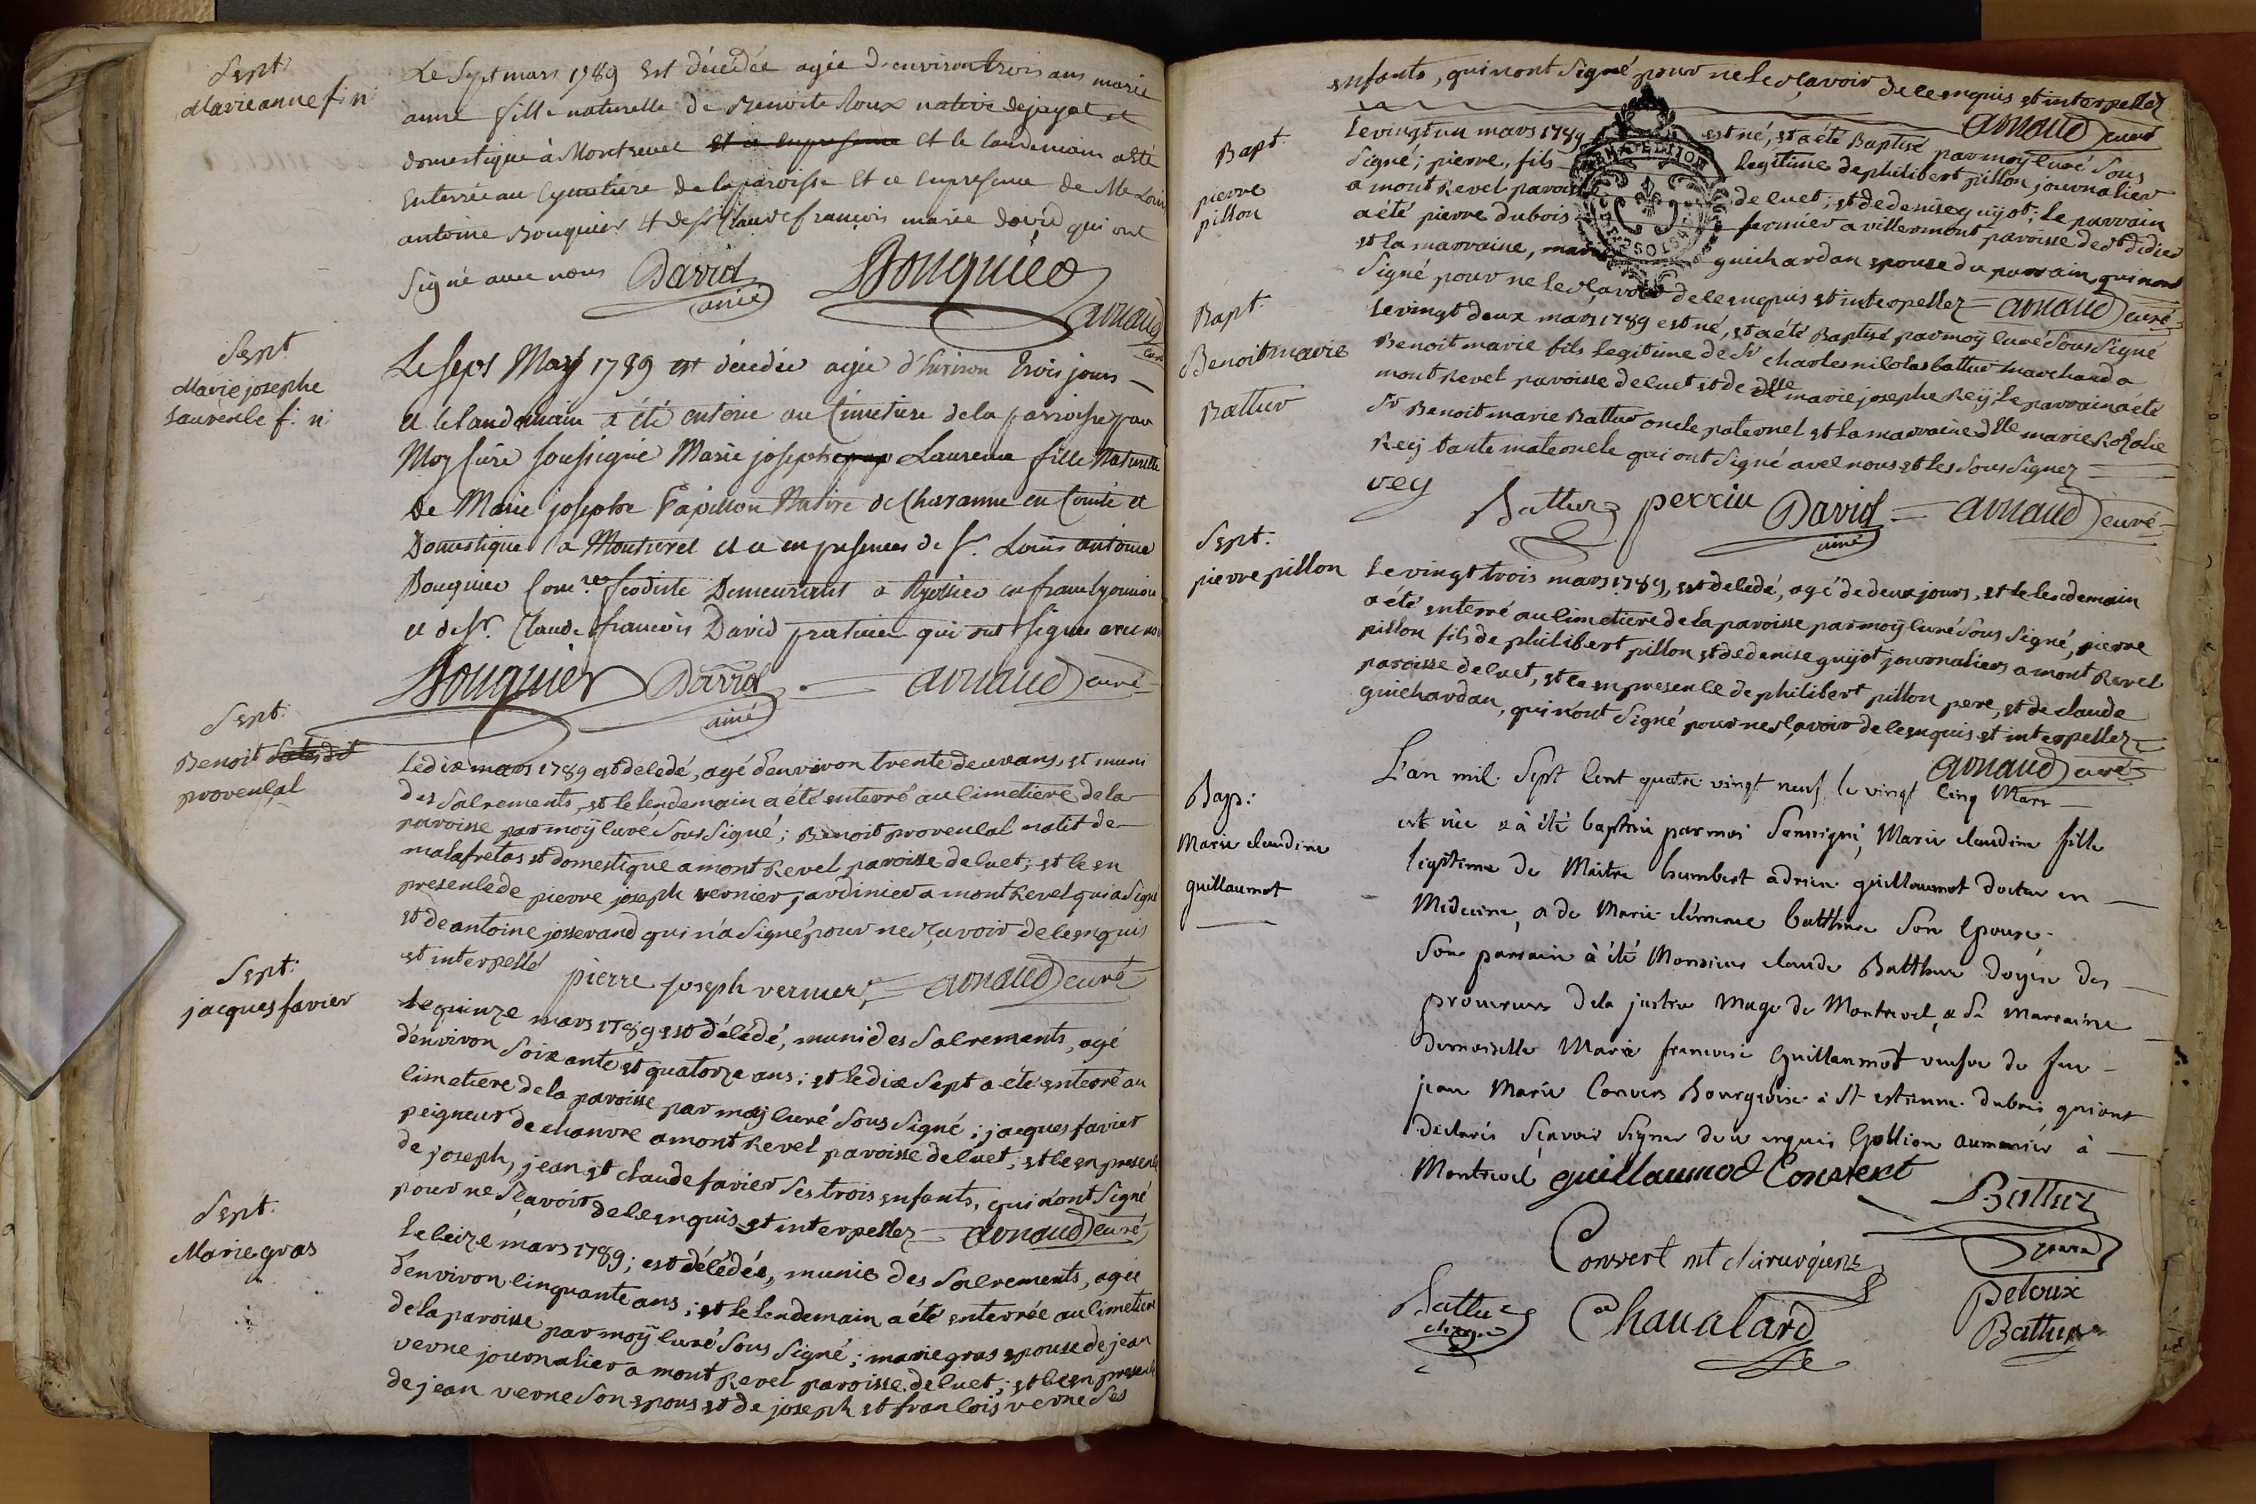 Sept.
Marie anne f. n.
Le Sept mars 1789 Est décédée agée d'environ trois ans marie
anne fille naturelle de Benoite Roux native de jayat et
domestique à Montrevel et a en presence et le landemain a été
Enterrée au Cymetiere de la paroisse Et ce En presence de Me Louis
antoine Bouquier & de Sr Claude françois marie David qui ont
Signé avec nous David ainé Bouquier
arnaud curé
Sept
Marie josephe
Laurence f. n.
Le Sept Mars 1789 est décédée agée d'Environ trois jours
et le landemain a été enterrée au Cimetiere de la parroisse par
Moy Curé soussigné Marie josephe Laurence fille Naturelle
De Marie josephe Papillon Native de en Comté et
Domestique a Montrevel et ce en presences de Sr. Louis antoine
Bouquier Comre feodiste Demeurant a en franc lyonnois
et de Sr. Claude francois David praticien qui ont signé avec nous
Bouquier David ainé arnaud curé
Sept.
Benoit
provencal
Le dix mars 1789 est decedé, agé d'environ trente deux ans, et muni
des Sacrements, et le lendemain a été enterré au cimetiere de la
paroisse par moÿ curé Sous Signé; Benoit provencal natif de
malafretas et domestique a mont Revel paroisse de cuet; et ce en
presence de pierre joseph vernier jardinier a mont Revel qui a Signé
et de antoine josserand qui n'a Signé pour ne sçavoir de ce enquis
et interpellé pierre joseph vernier arnaud curé
Sept.
jacques favier
Le quinze mars 1789 est décédé, muni des Sacrements, agé
d'environ Soixante et quatorze ans; et le dix Sept a été enterré au
cimetiere de la paroisse par moÿ curé Sous Signé; jacques favier
peigneur de chanvre a mont Revel paroisse de cuet; et ce en presence
de joseph, jean et claude favier Ses trois enfants, qui n'ont Signé
pour ne Sçavoir de ce enquis et interpellez arnaud curé
Sept.
Marie gras
Le seize mars 1789; est décédée, munie des Sacrements, agée
d'environ cinquante ans; et le lendemain a été enterrée au cimetiere
de la paroisse par moÿ curé Sous Signé; marie gras epouse de jean
verne journalier a mont Revel paroisse de cuet; et ce en presence
de jean verne Son epoux et de joseph et francois verne Ses
enfants, qui n'ont Signé pour ne le sçavoir de ce enquis et interpellez
arnaud curé
Bapt.
pierre
pillon
Le vingt un mars 1789 est né, et a été Baptisé par moÿ curé Sous
Signé; pierre, fils legitime de philibert pillon journalier
a mont Revel paroisse de cuet; et de denise guijot; le parrain
a été pierre dubois fermier a villermont paroisse de st didier
et la marraine, marie guichardan epouse du parrain, qui n'ont
Signé pour ne le sçavoir de ce enquis et interpellez arnaud curé
Bapt.
Benoit marie
Battur
Le vingt deux mars 1789 est né, et a été Baptisé par moÿ curé Sous Signé
Benoit marie fils legitime de Sr charles nicolas battur marchand a
mont Revel paroisse de cuet et de dlle marie josephe Reÿ; Le parrain a été
Sr Benoit marie Battur oncle paternel et la marraine dlle marie Rozalie
Reÿ tante maternelle qui ont Signé avec nous et les Sous Signez
rey Battur perrin David ainé arnaud curé
Sept.
pierre pillon
Le vingt trois mars 1789, est decedé, agé de deux jours, et le lendemain
a été enterré au cimetiere de la paroisse par moÿ curé Sous Signé, pierre
pillon fils de philibert pillon et de denise guijot journaliers a mont Revel
paroisse de cuet, et ce en presence de philibert pillon pere, et de claude
guichardan, qui n'ont Signé pour ne sçavoir de ce enquis et interpellez
arnaud curé
Bap:
Marie claudine
guillaumot
L'an mil. Sept Cent quatre vingt neuf. le vingt Cinq Mars
est née & à été baptisée par moi Soussigné, Marie claudine fille
legitime de Maitre humbert adrien guillaumot docteur en
Médecine, & de Marie Batthur Son Epouse.
Son parrain à été Monsieur claude Batthur doyen des
procureurs de la justice Mage de Montrevel, & Sa Marraine
demoiselle Marie francoise Guillaumot veufve de feu
jean Marie Convers Bourgeoise à St estienne. dubois qui ont
déclarés Sçavoir Signer de ce enquis aumonier à
Montrevel guillaumot Convert
Battur
Convert mt chirurgiens
Battur Chavalard
peloux
Battur